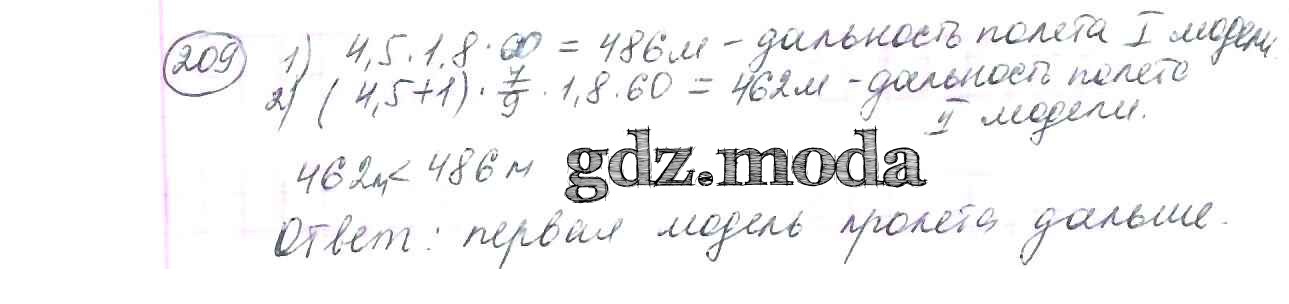 209 1) 4,5·1,8·60 = 486м - дальность полета I модели.
2) (4,5+1)·7/9·1,8·60 = 462м - дальность полета
II модели.
462м < 486м
gdz.moda
Ответ: первая модель пролета дальше.